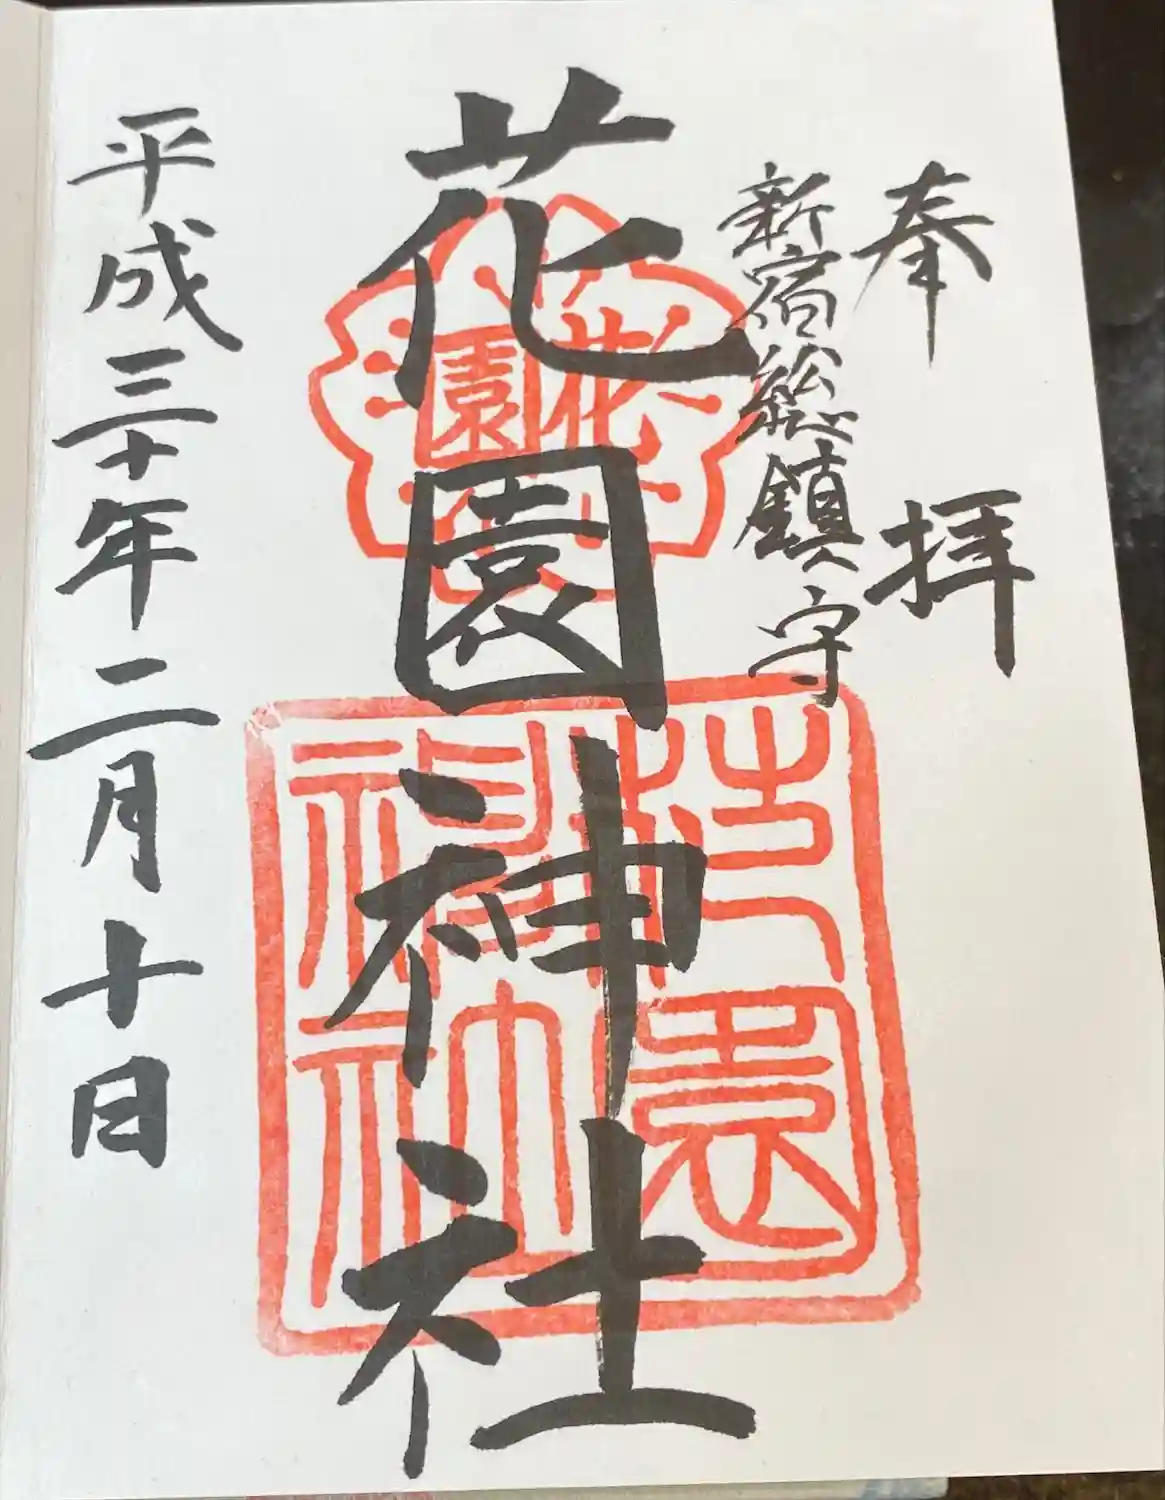 奉拝
新宿総鎮守
花園神社
花園
花園神社
平成三十年二月十日